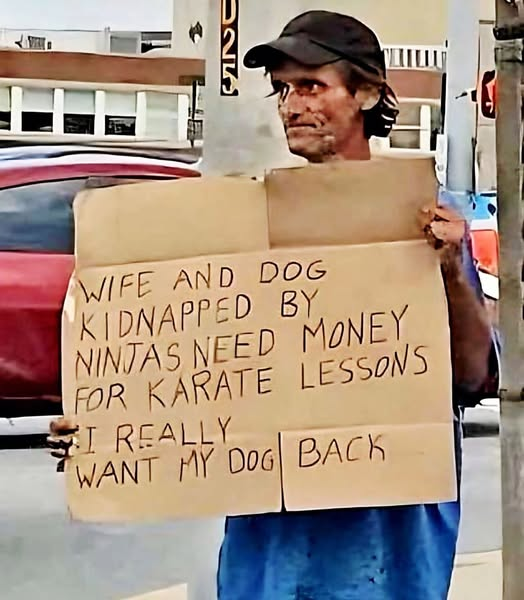 WIFE AND DOG
KIDNAPPED BY
NINJAS NEED MONEY
FOR KARATE LESSONS
I REALLY
WANT MY DOG BACK